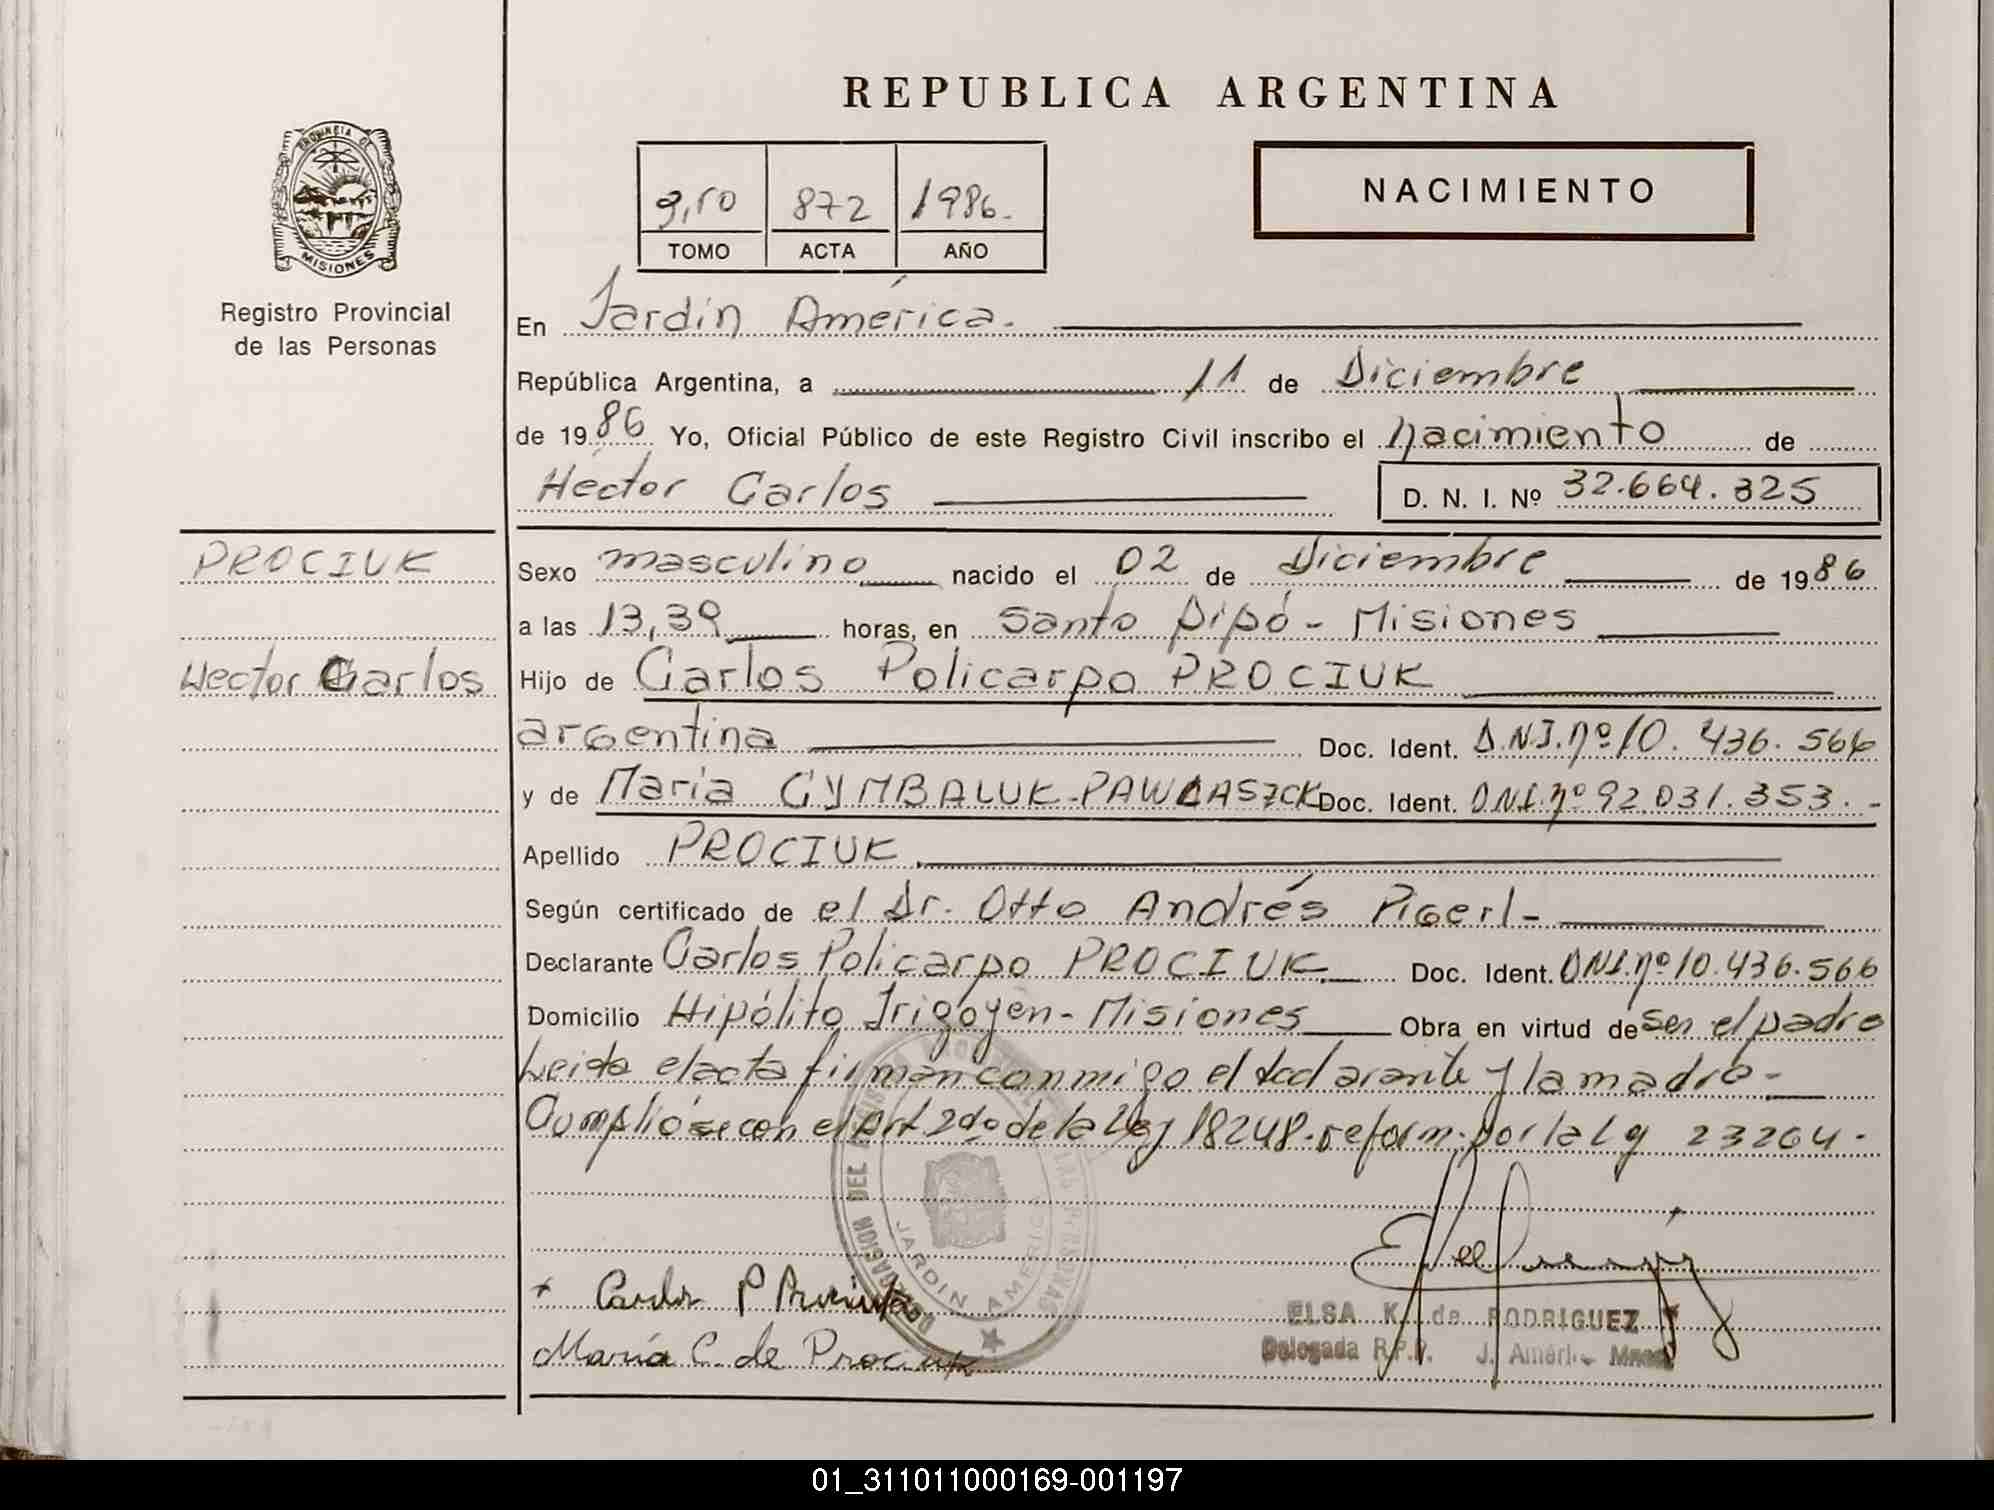 REPUBLICA ARGENTINA
PROVINCIA DE
MISIONES
Registro Provincial
de las Personas
872 1986.
TOMO ACTA AÑO
NACIMIENTO
En Jardín América.
República Argentina, a 11 de Diciembre
de 1986 Yo, Oficial Público de este Registro Civil inscribo el nacimiento de
Héctor Carlos D. N. I. Nº 32.664.325
PROCIUK
Hector Carlos
Sexo masculino nacido el 02 de Diciembre de 1986
a las 13,30 horas, en Santo Pipó - Misiones
Hijo de Carlos Policarpo PROCIUK
argentina Doc. Ident. D.N.I. nº 10.436.566
y de María CYMBALUK-PAWLASZCK Doc. Ident. D.N.I. nº 92.031.353.-
Apellido PROCIUK
Según certificado de el Dr. Otto Andrés Pigerl-
Declarante Carlos Policarpo PROCIUK Doc. Ident. DNI. nº 10.436.566
Domicilio Hipólito Irigoyen - Misiones Obra en virtud de ser el padre
Leida el acta firman conmigo el declarante y la madre-
Cumplióse con el Art 2do de la Ley 18248. reform. por la Ley 23264.
JARDIN AMERICA
Carlos P Prociuk
María C. de Prociuk
ELSA K. de RODRIGUEZ
Delegada R.P.P. J. Améri
01_311011000169-001197